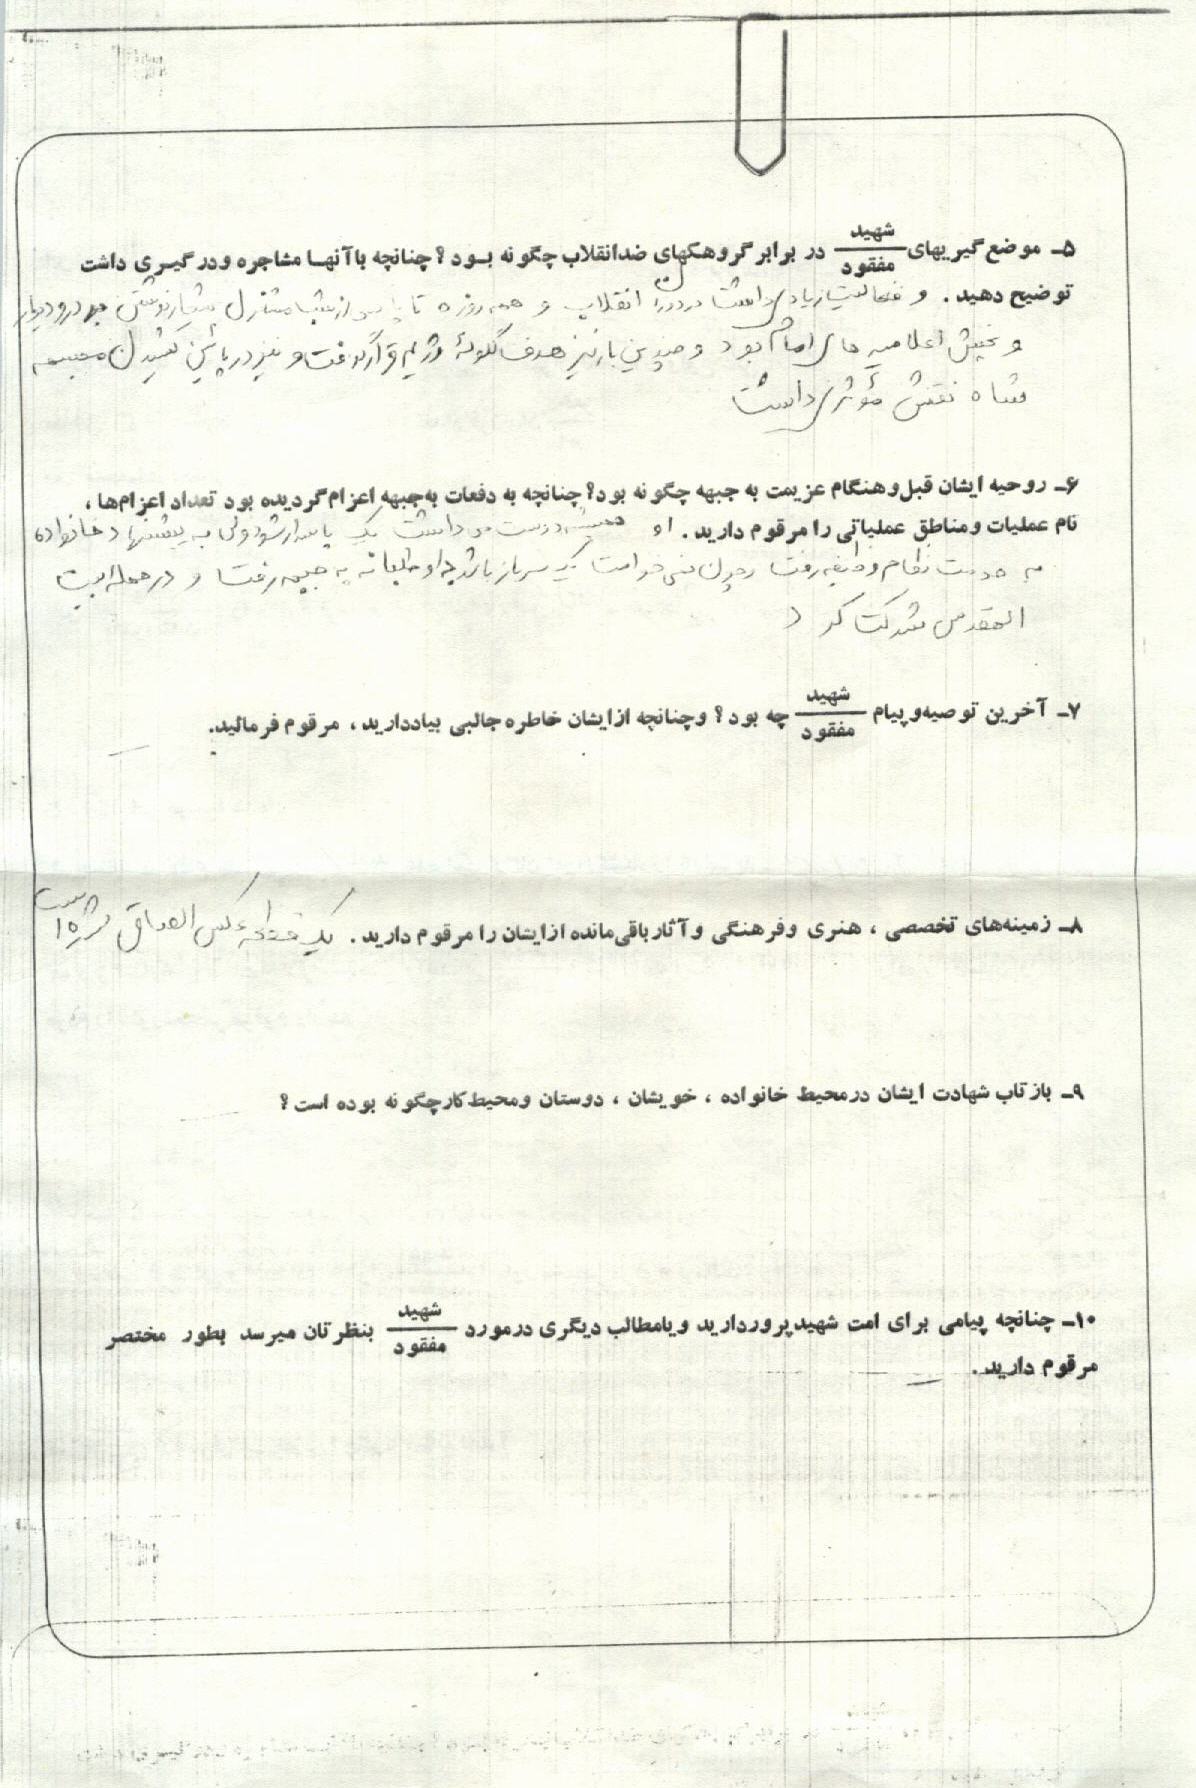 ۵ـ موضع گیریهای شهید / مفقود در برابر گروهکهای ضدانقلاب چگونه بود؟ چنانچه با آنها مشاجره و درگیری داشت
توضیح دهید. و فعالیت زیادی داشت در دوران انقلاب و همه روزه تا پاسی از شب منزل شعار نوشتن بر در و دیوار
و پخش اعلامیه های امام بود و چندین بار نیز هدف گلوله رژیم قرار گرفت و نیز در پائین کشیدن مجسمه
شاه نقش مؤثری داشت
۶ـ روحیه ایشان قبل و هنگام عزیمت به جبهه چگونه بود؟ چنانچه به دفعات به جبهه اعزام گردیده بود تعداد اعزام‌ها،
نام عملیات و مناطق عملیاتی را مرقوم دارید. او همیشه دوست می داشت یک پاسدار شود ولی به پیشنهاد خانواده
به خدمت نظام وظیفه رفت و چون می خواست یک سرباز باشد داوطلبانه به جبهه رفت و در حمله بیت
المقدس شرکت کرد
۷ـ آخرین توصیه و پیام شهید / مفقود چه بود؟ و چنانچه از ایشان خاطره جالبی بیاد دارید، مرقوم فرمائید.
۸ـ زمینه‌های تخصصی، هنری و فرهنگی و آثار باقی‌مانده از ایشان را مرقوم دارید. یک قطعه عکس الصاق شده است
۹ـ بازتاب شهادت ایشان در محیط خانواده، خویشان، دوستان و محیط کار چگونه بوده است؟
۱۰ـ چنانچه پیامی برای امت شهیدپرور دارید و یا مطالب دیگری در مورد شهید / مفقود بنظرتان میرسد بطور مختصر
مرقوم دارید.